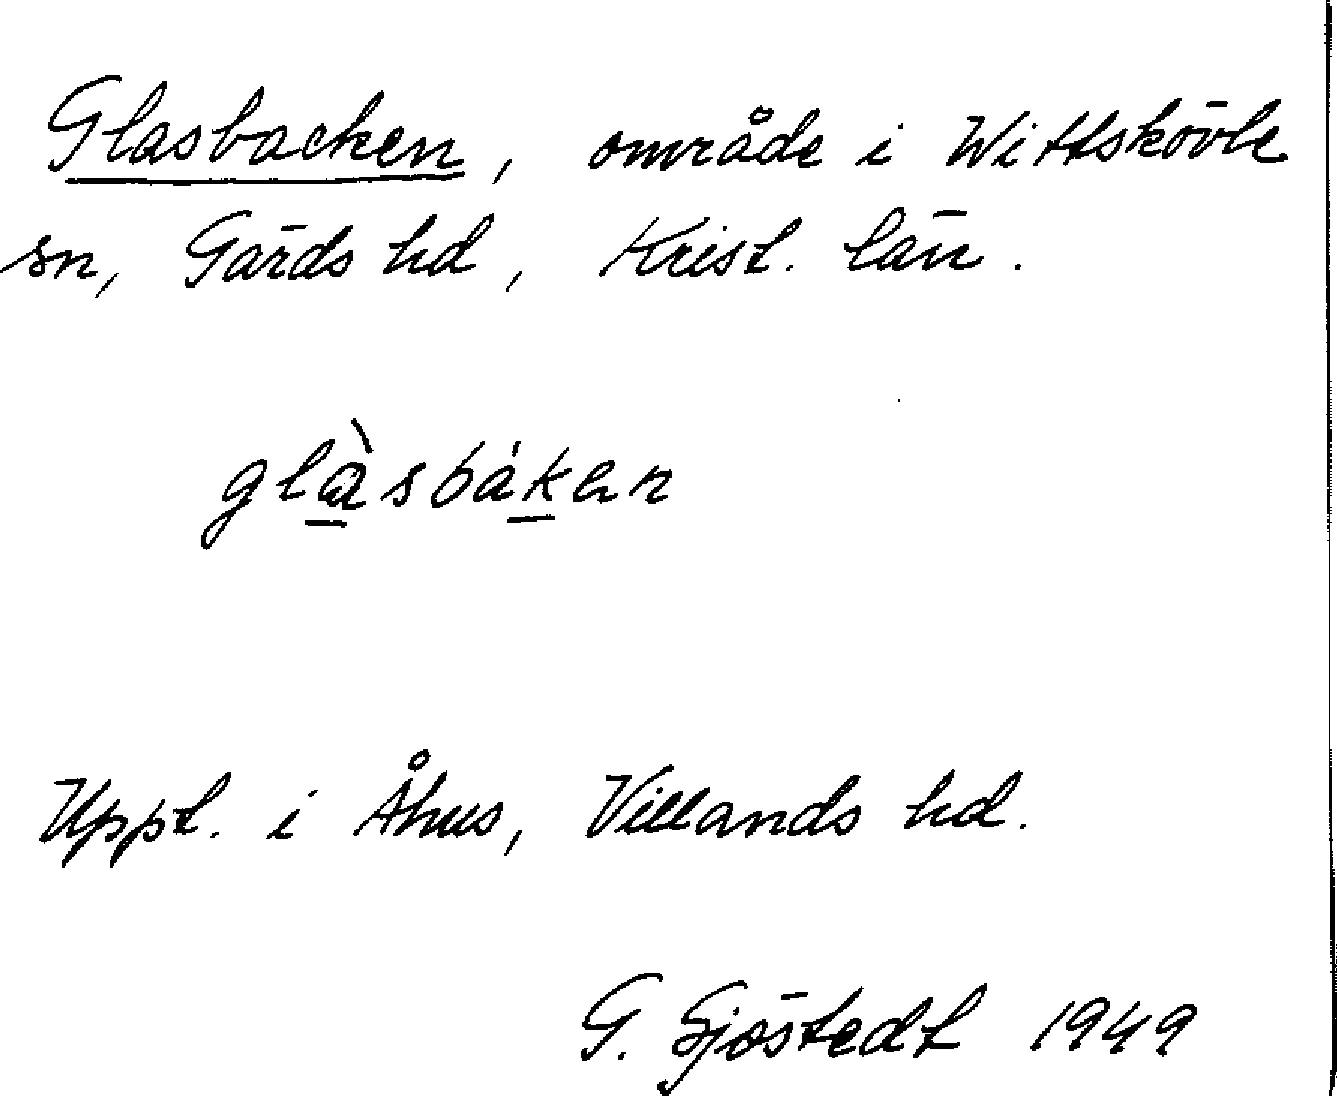 Glasbacken, område i Wittskövle
sn, Gärds hd, Krist. län.
glàsbáken
Uppt. i Åhus, Villands hd.
G. Sjöstedt 1949